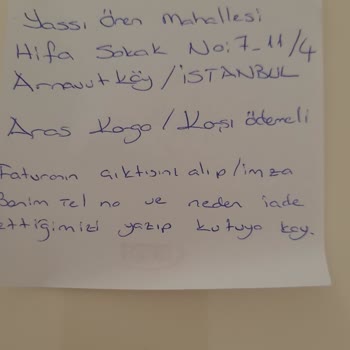 Yassı Ören Mahallesi
Hifa Sokak No: 7-11/4
Arnavutköy / İSTANBUL
Aras Kogo / Karşı ödemeli
Faturanın çıktısını alıp/imza
Benim Tel no ve neden iade
ettiğimizi yazıp kutuya koy.